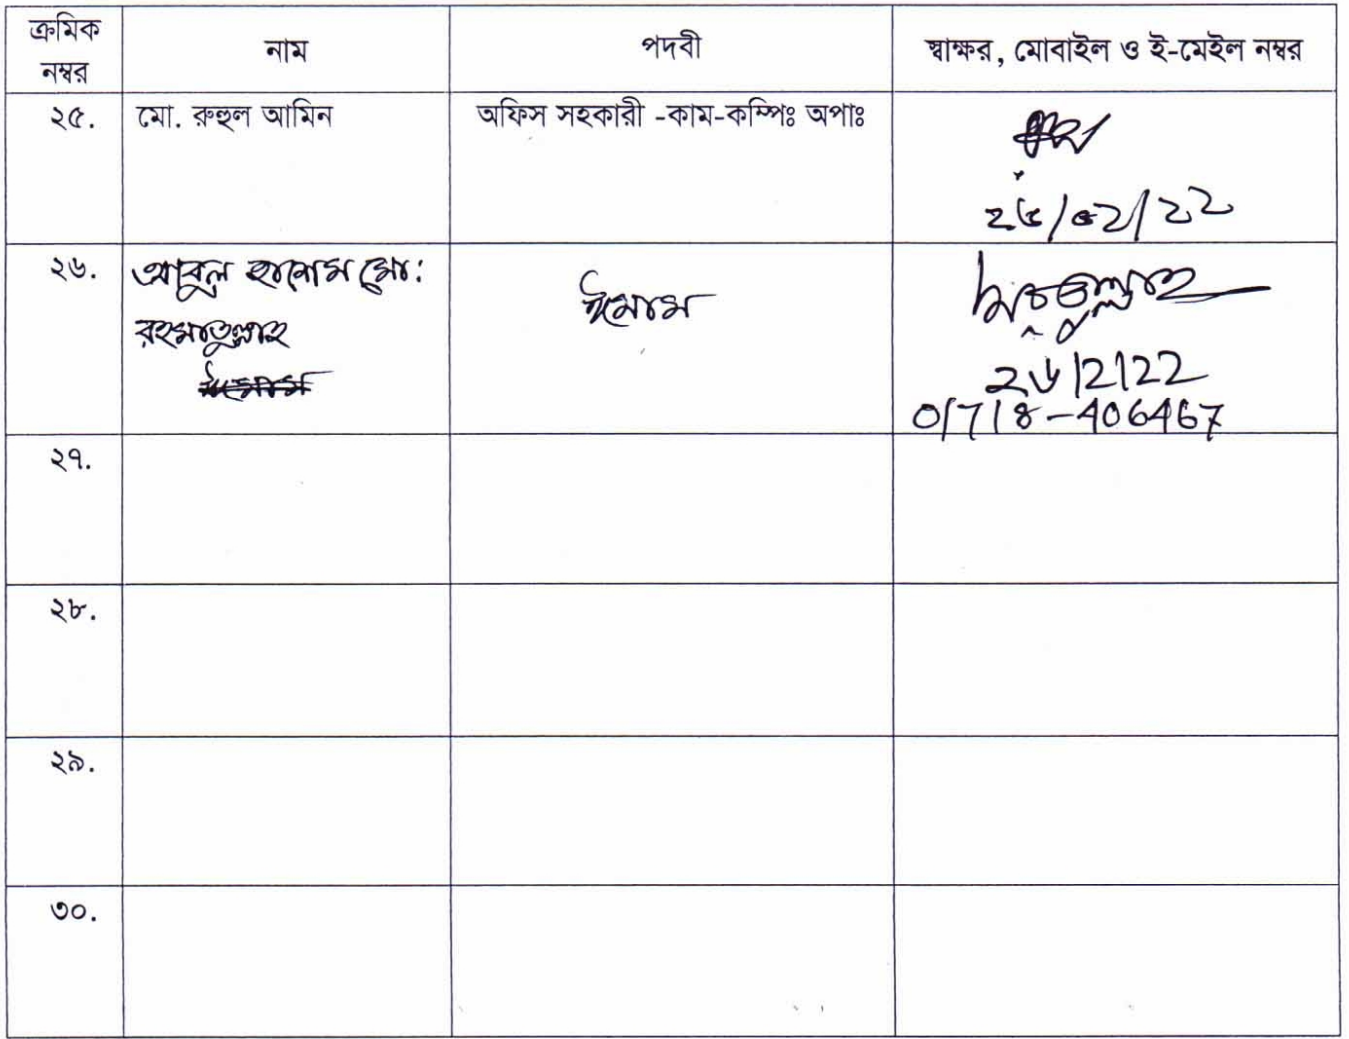 ক্রমিক নম্বর নাম পদবী স্বাক্ষর, মোবাইল ও ই-মেইল নম্বর
২৫. মো. রুহুল আমিন অফিস সহকারী -কাম-কম্পিঃ অপাঃ
২৬. আবুল হাশেম মো: ঈমাম
রহমাতুল্লাহ
ঈমাম
২৬/2/22
01718-406467
২৭.
২৮.
২৯.
৩০.